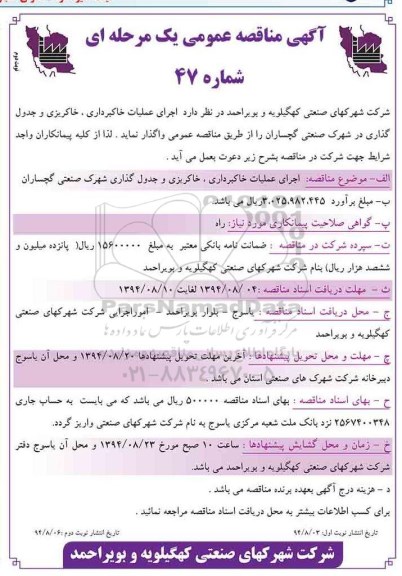 آگهی مناقصه عمومی یک مرحله ای
شماره ۴۷
نوبت دوم
شرکت شهرکهای صنعتی کهگیلویه و بویراحمد در نظر دارد اجرای عملیات خاکبرداری ، خاکریزی و جدول
گذاری در شهرک صنعتی گچساران را از طریق مناقصه عمومی واگذار نماید . لذا از کلیه پیمانکاران واجد
شرایط جهت شرکت در مناقصه بشرح زیر دعوت بعمل می آید .
الف- موضوع مناقصه: اجرای عملیات خاکبرداری ، خاکریزی و جدول گذاری شهرک صنعتی گچساران
ب- مبلغ برآورد ۳،۰۲۵،۹۸۲،۴۴۵ ریال می باشد.
پ- گواهی صلاحیت پیمانکاری مورد نیاز: راه
ت- سپرده شرکت در مناقصه : ضمانت نامه بانکی معتبر به مبلغ ۱۵۶۰۰۰۰۰ ریال( پانزده میلیون و
ششصد هزار ریال) بنام شرکت شهرکهای صنعتی کهگیلویه و بویراحمد
ث - مهلت دریافت اسناد مناقصه : ۱۳۹۴/۰۸/۰۴ لغایت ۱۳۹۴/۰۸/۱۰
ج - محل دریافت اسناد مناقصه : یاسوج – بلوار بویراحمد - اموراجرایی شرکت شهرکهای صنعتی
کهگیلویه و بویراحمد
چ - مهلت و محل تحویل پیشنهادها : آخرین مهلت تحویل پیشنهادها ۱۳۹۴/۰۸/۲۰ و محل آن یاسوج
دبیرخانه شرکت شهرک های صنعتی استان می باشد .
ح - بهای اسناد مناقصه : بهای اسناد مناقصه ۵۰۰۰۰۰ ریال می باشد که می بایست به حساب جاری
۲۵۶۷۴۰۰۳۴۸ نزد بانک ملت شعبه مرکزی یاسوج به نام شرکت شهرکهای صنعتی واریز گردد.
خ - زمان و محل گشایش پیشنهادها : ساعت ۱۰ صبح مورخ ۱۳۹۴/۰۸/۲۳ و محل آن یاسوج دفتر
شرکت شهرکهای صنعتی کهگیلویه و بویراحمد می باشد.
د - هزینه درج آگهی بعهده برنده مناقصه می باشد.
برای کسب اطلاعات بیشتر به محل دریافت اسناد مناقصه مراجعه نمائید .
تاریخ انتشار نوبت اول: ۹۴/۸/۰۳
تاریخ انتشار نوبت دوم: ۹۴/۸/۰۶
شرکت شهرکهای صنعتی کهگیلویه و بویراحمد
ParsNamadData
مرکز فرآوری اطلاعات پارس نماد داده ها
۰۲۱-۸۸۳۴۹۶۷۰-۵